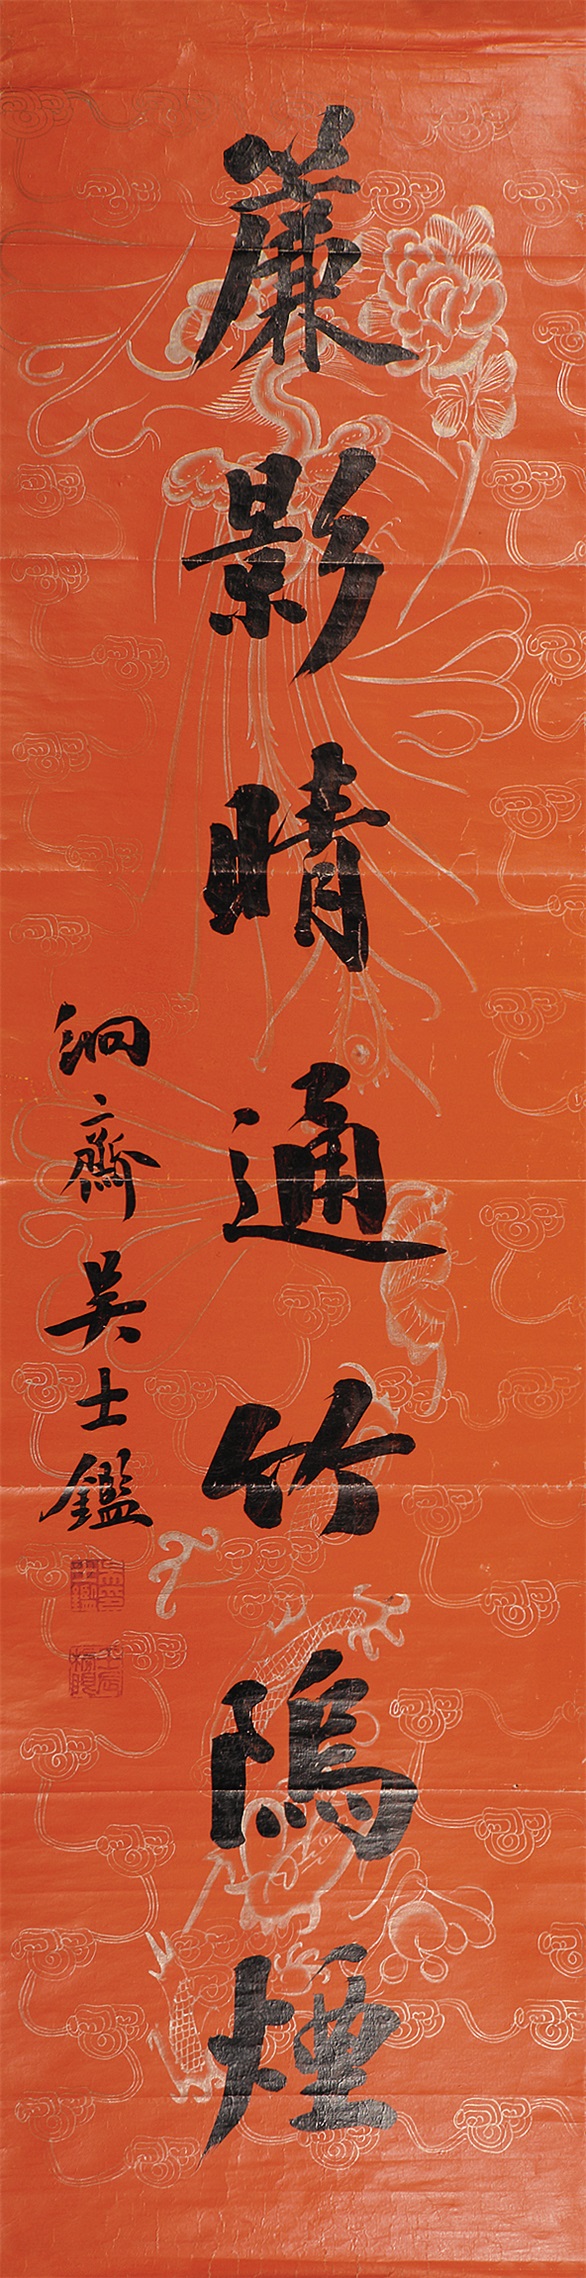 簾影晴通竹隖煙
絅齋吳士鑑